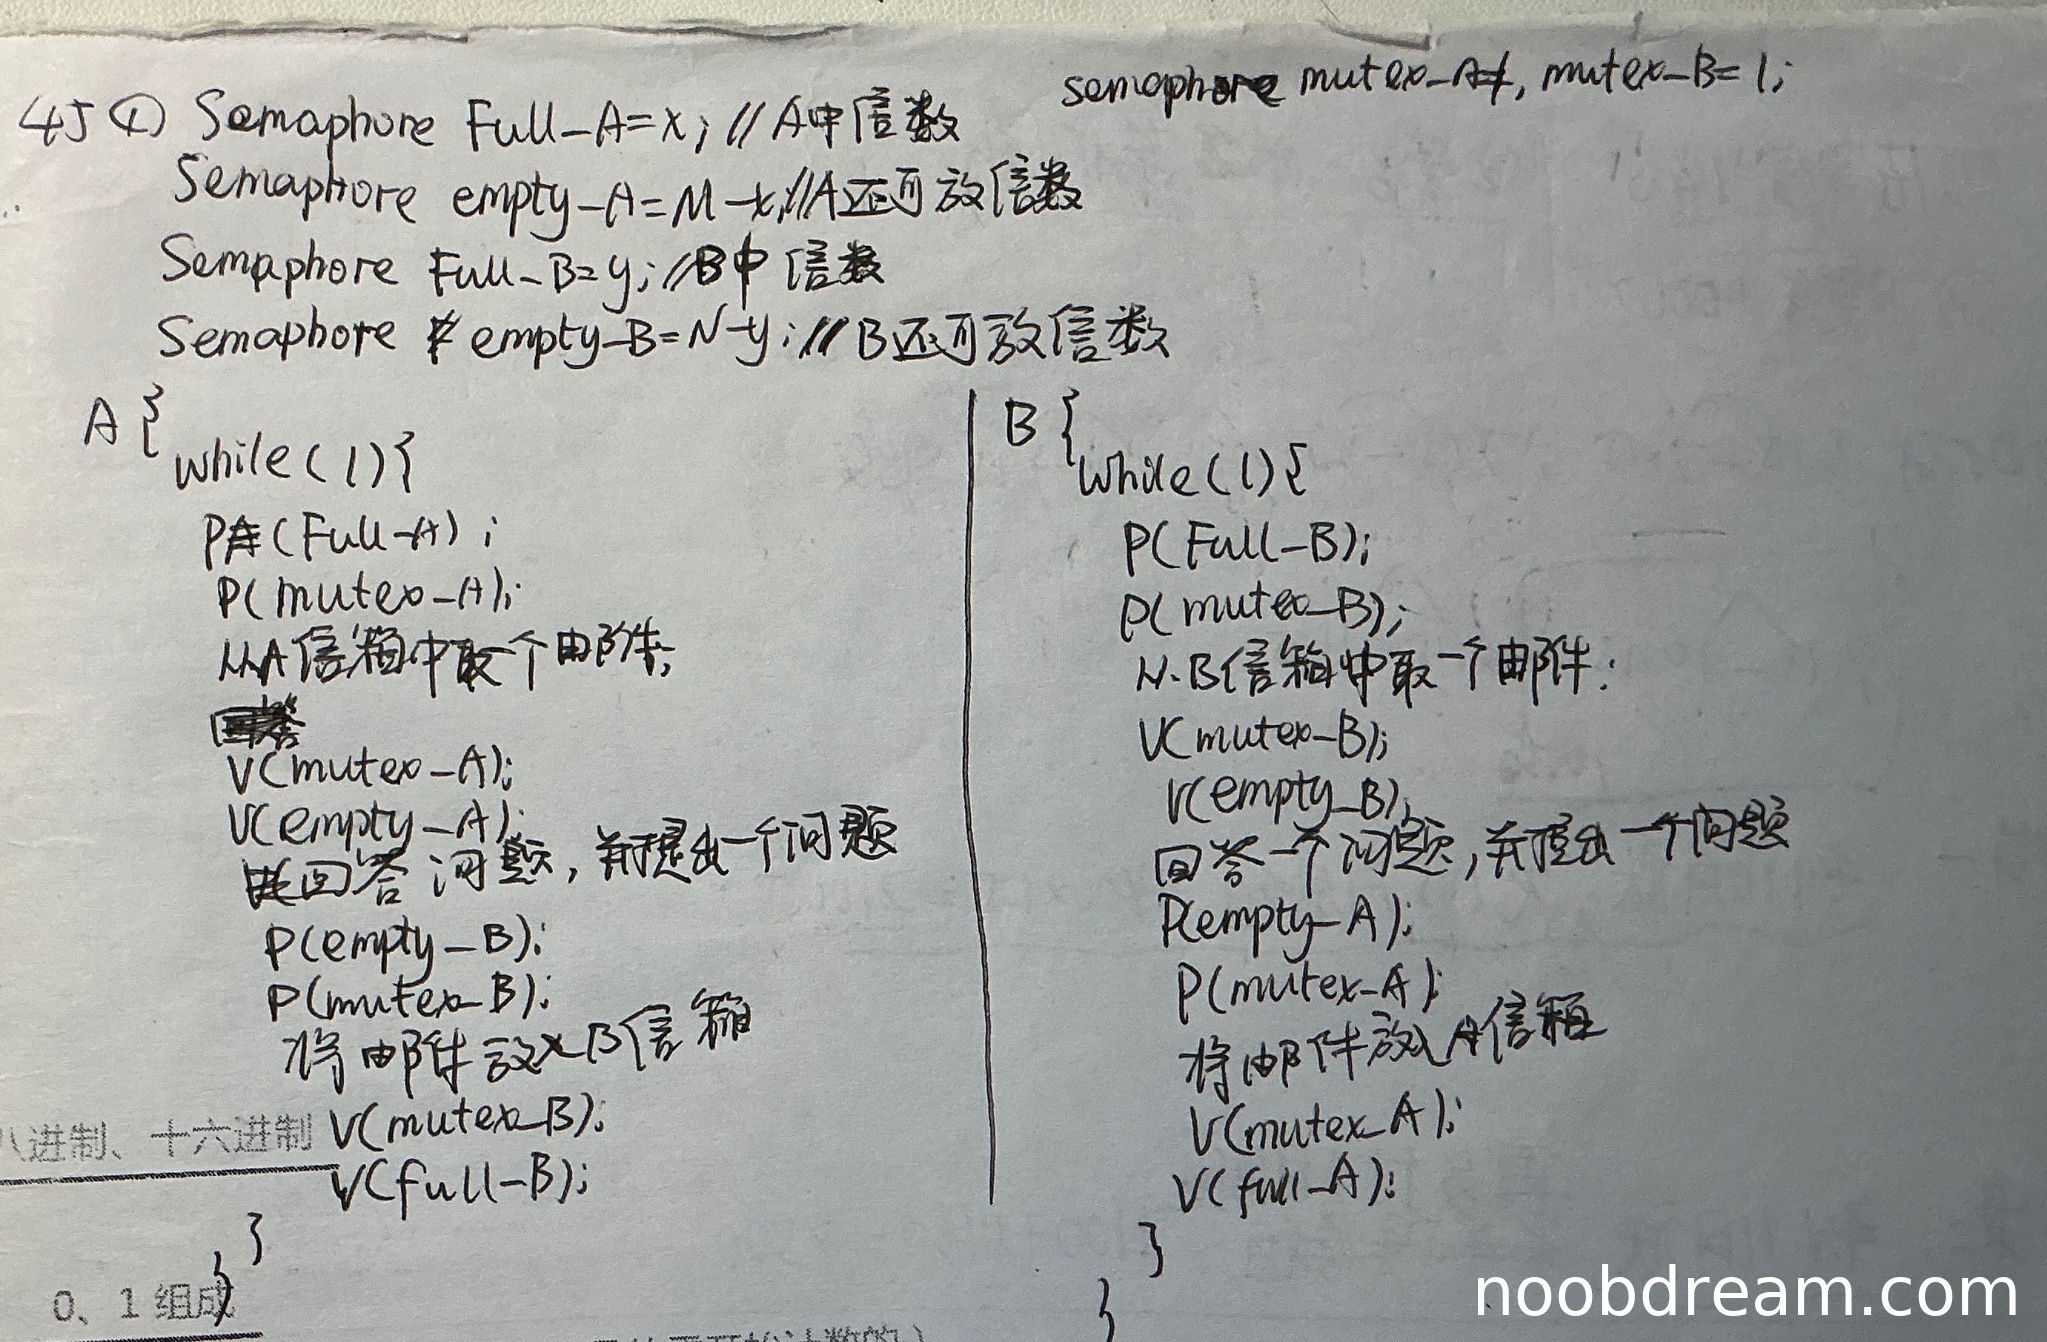 semaphore mutex-A=1, mutex-B=1;
45 ① Semaphore Full-A=x; //A中信数
Semaphore empty-A=M-x;//A还可放信数
Semaphore Full-B=y; //B中信数
Semaphore empty-B=N-y; //B还可放信数
A{
while(1){
P(Full-A);
P(mutex-A);
从A信箱中取一个邮件;
V(mutex-A);
V(empty-A);
回答问题,并提出一个问题
P(empty-B);
P(mutex-B);
将邮件放入B信箱
V(mutex-B);
V(full-B);
}
}
B{
while(1){
P(Full-B);
P(mutex-B);
从B信箱中取一个邮件;
V(mutex-B);
V(empty-B);
回答一个问题,并提出一个问题
P(empty-A);
P(mutex-A);
将邮件放入A信箱
V(mutex-A);
V(full-A);
}
}
八进制、十六进制
0、1 组成
noobdream.com